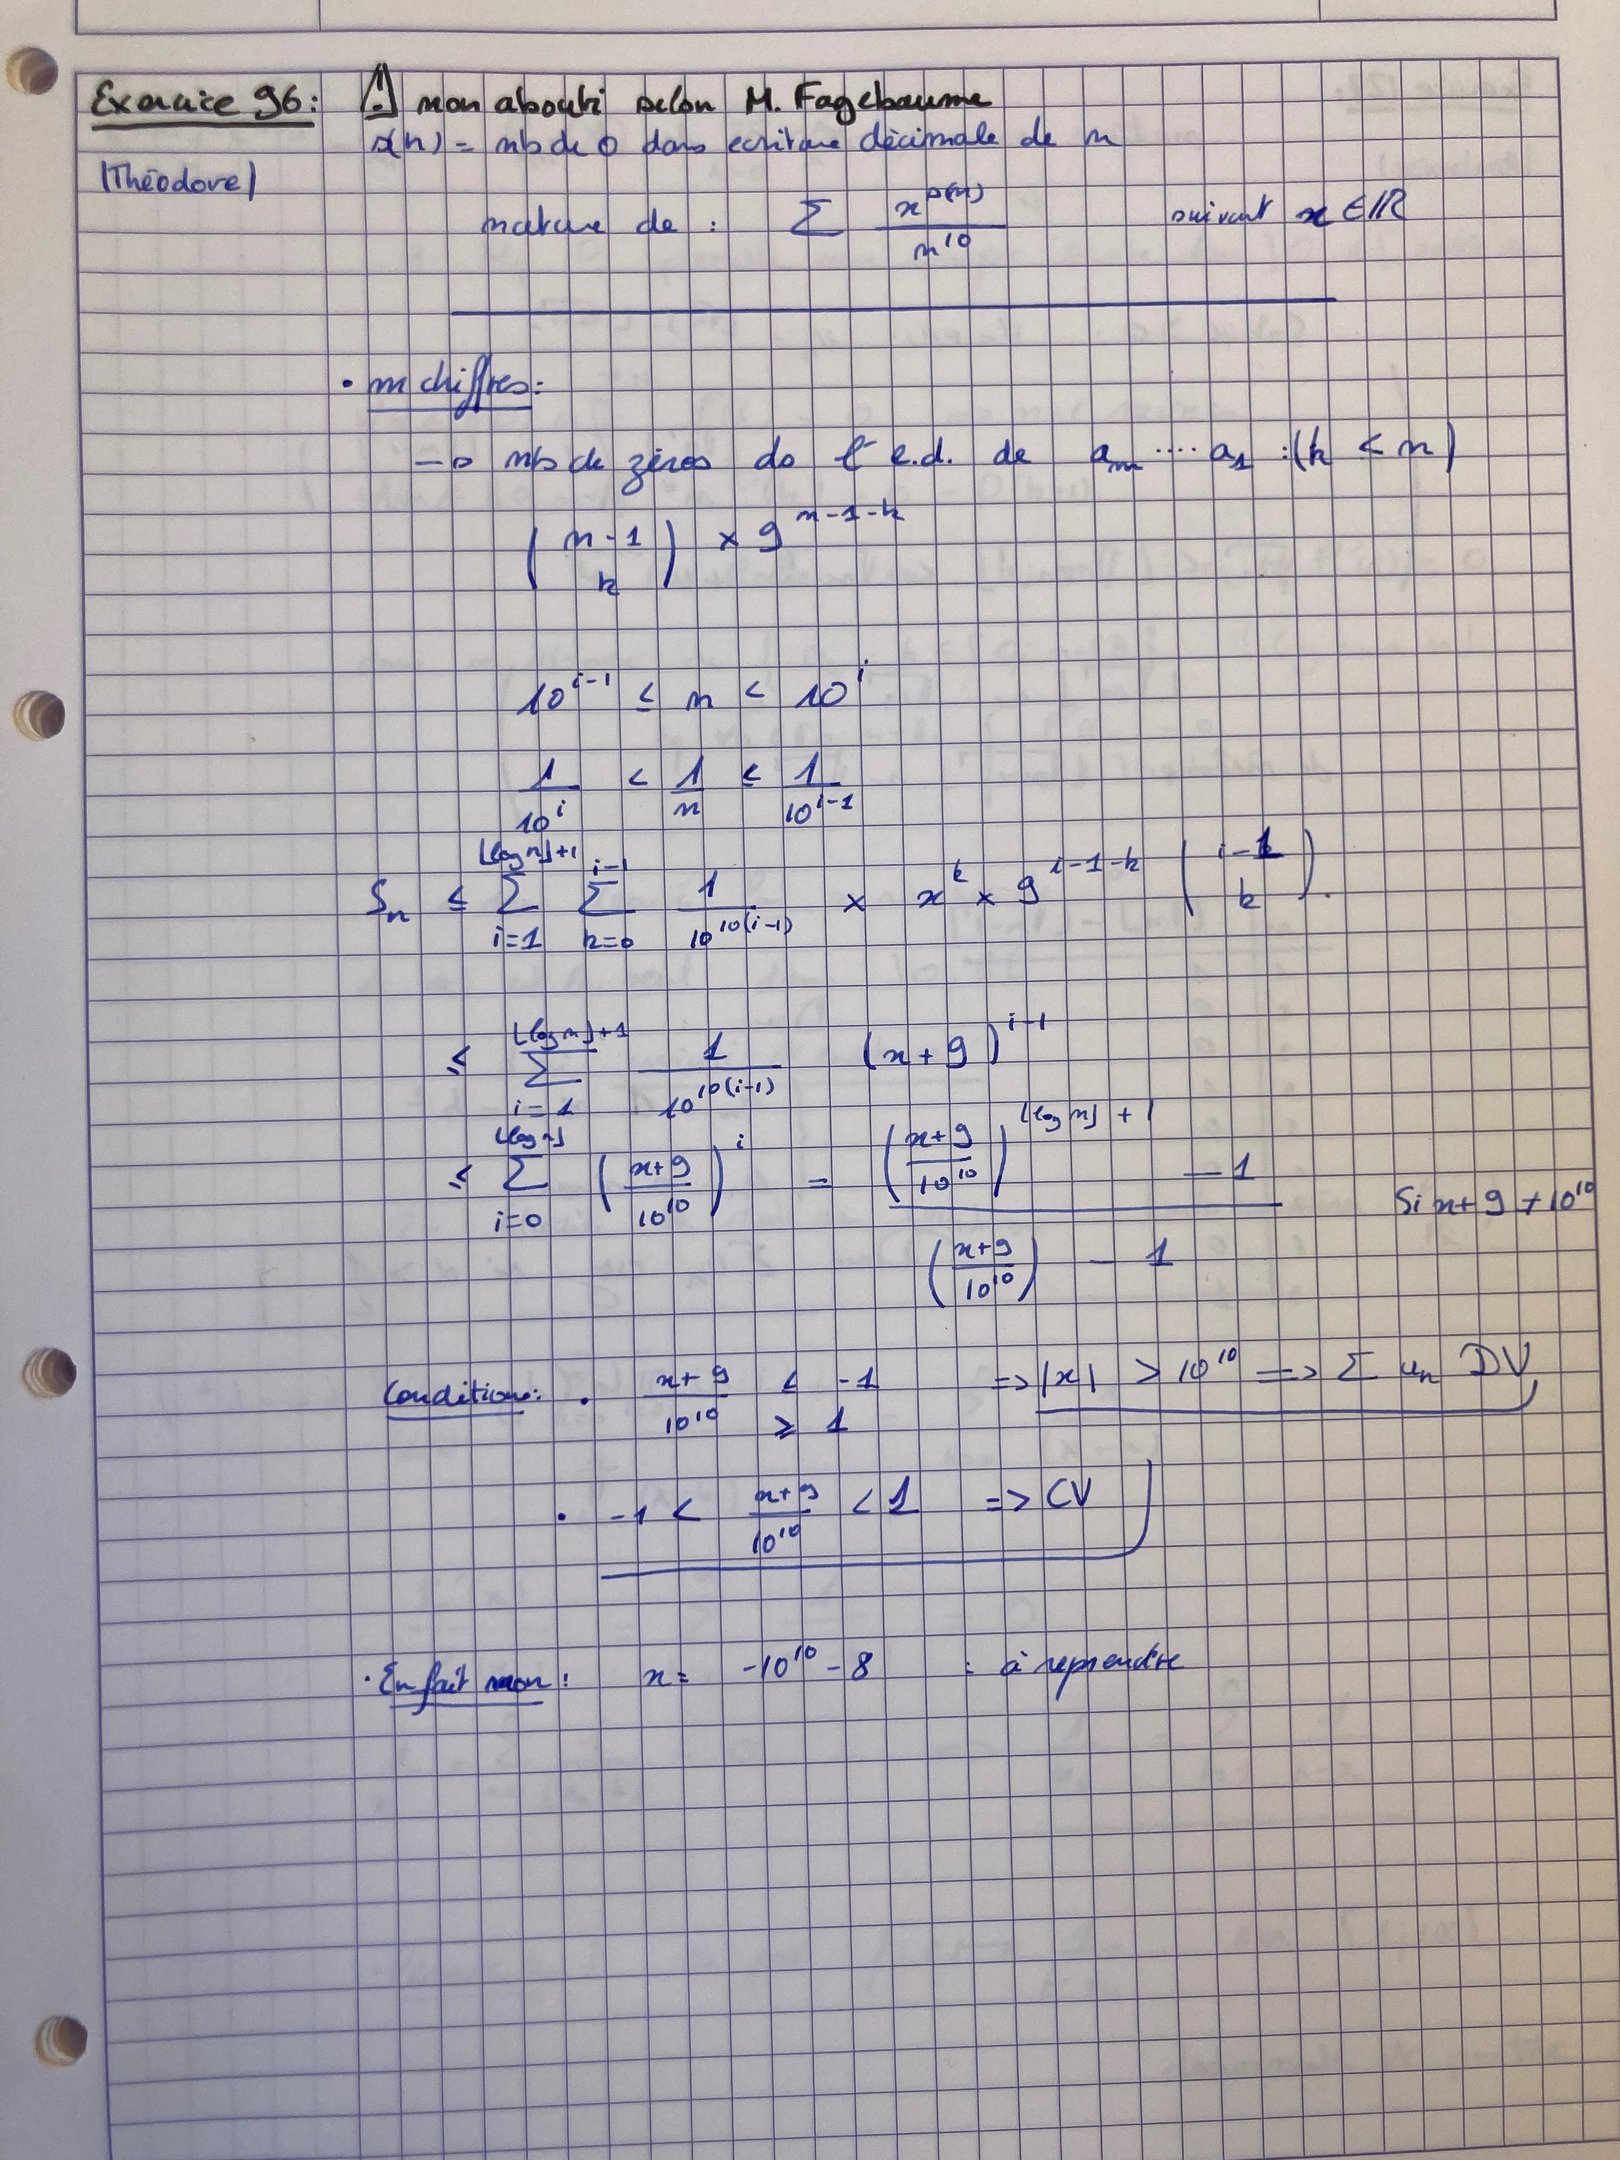 Exercice 96: ⚠ non abouti selon M. Fagebaume
(Théodore) s(n) = nb de 0 dans ecriture décimale de n
nature de : ∑ x^{s(n)} / n^{10} suivant x ∈ ℝ
• n chiffres:
→ nb de zéros ds l' e.d. de a_n .... a_1 : (k < n)
(n-1 \choose k) × 9^{n-1-k}
10^{i-1} ≤ n < 10^i
1/10^i < 1/n ≤ 1/10^{i-1}
S_n ≤ ∑_{i=1}^{⌊log n⌋+1} ∑_{k=0}^{i-1} 1/10^{10(i-1)} × x^k × 9^{i-1-k} (i-1 \choose k).
≤ ∑_{i=1}^{⌊log n⌋+1} 1/10^{10(i-1)} (x+9)^{i-1}
≤ ∑_{i=0}^{⌊log n⌋} ((x+9)/10^{10})^i = (((x+9)/10^{10})^{⌊log n⌋+1} - 1) / (((x+9)/10^{10}) - 1) Si x+9 ≠ 10^{10}
Conditions: • (x+9)/10^{10} ≤ -1 => |x| > 10^{10} => ∑ u_n DV
≥ 1
• -1 < (x+9)/10^{10} < 1 => CV
• En fait non : x = -10^{10} - 8 : à reprendre